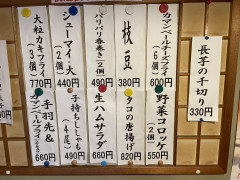 長芋の千切り
330円
カマンベールチーズフライ
600円
枝豆
380円
パリパリ春巻き(2個)
490円
シューマイ大(2個)
440円
大粒カキフライ(3個)
770円
野菜コロッケ(2個)
550円
タコの唐揚げ
820円
生ハムサラダ
660円
子持ちししゃも(4尾)
490円
手羽先&
660円